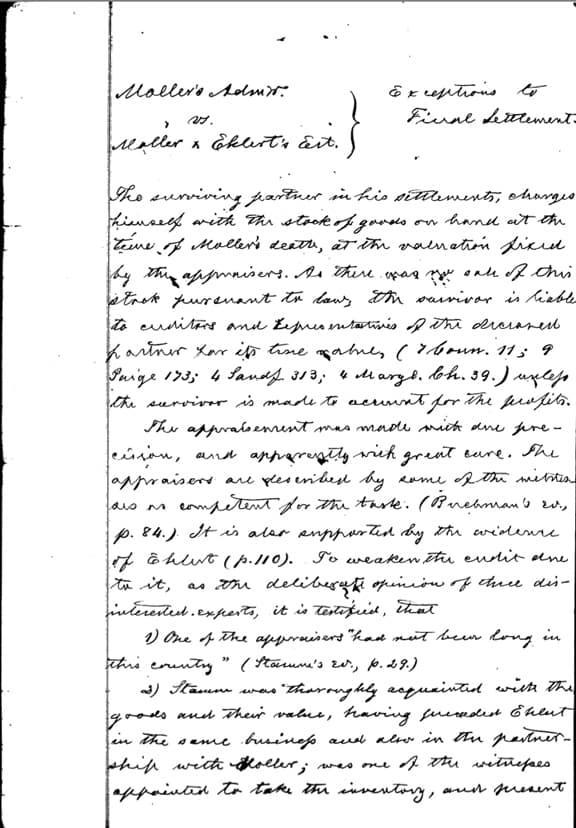 Moller's Admr.
vs.
Moller & Ehlert's Est.
Exceptions to
Final Settlement.
The surviving partner in his settlements, charges
himself with the stock of goods on hand at the
time of Moller's death, at the valuation fixed
by the appraisers. As there was no sale of this
stock pursuant to law, the survivor is liable
to creditors and representatives of the deceased
partner for its true value, (7 Conn. 11; 9
Paige 173; 4 Sandf 313; 4 Maryl. Ch. 39.) unless
the survivor is made to account for the profits.
The appraisement was made with due pre-
cision, and apparently with great care. The
appraisers are described by some of the witnes-
ses as competent for the task. (Buchman's ev.,
p. 84.) It is also supported by the evidence
of Ehlert (p. 110). To weaken the credit due
to it, as the deliberate opinion of three dis-
interested experts, it is testified, that
1) One of the appraisers "had not been long in
this country" (Stamm's ev., p. 29.)
2) Stamm was "thoroughly acquainted with the
goods and their value, having preceded Ehlert
in the same business and also in the partner-
ship with Moller; was one of the witnesses
appointed to take the inventory, and present